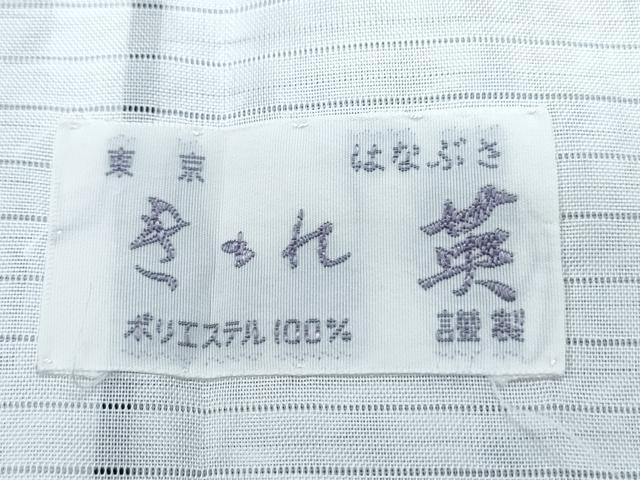 東京 はなぶさ
きぬたや 英
ポリエステル100% 謹製